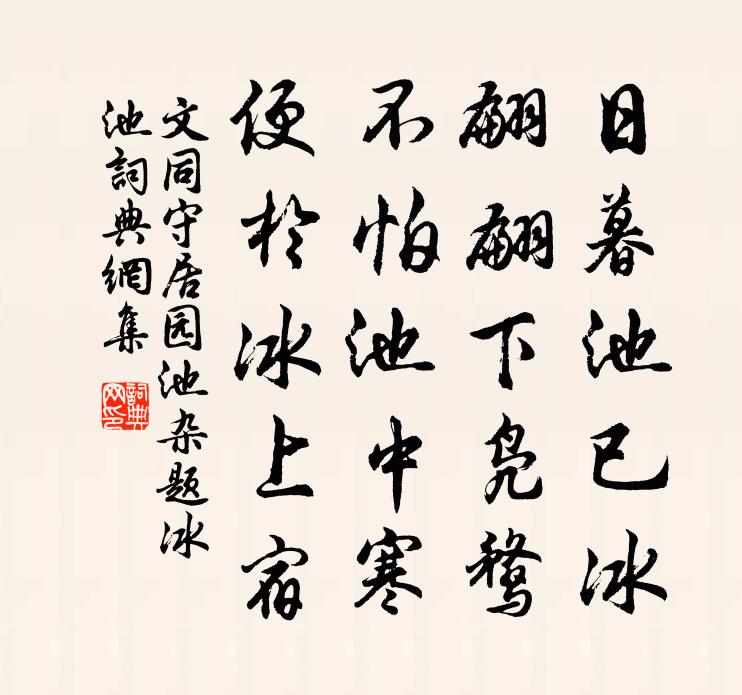 日暮池已冰
翩翩下凫鹜
不怕池中寒
便於冰上宿
文同守居园池杂题冰
池詞典網集
詞典
网印